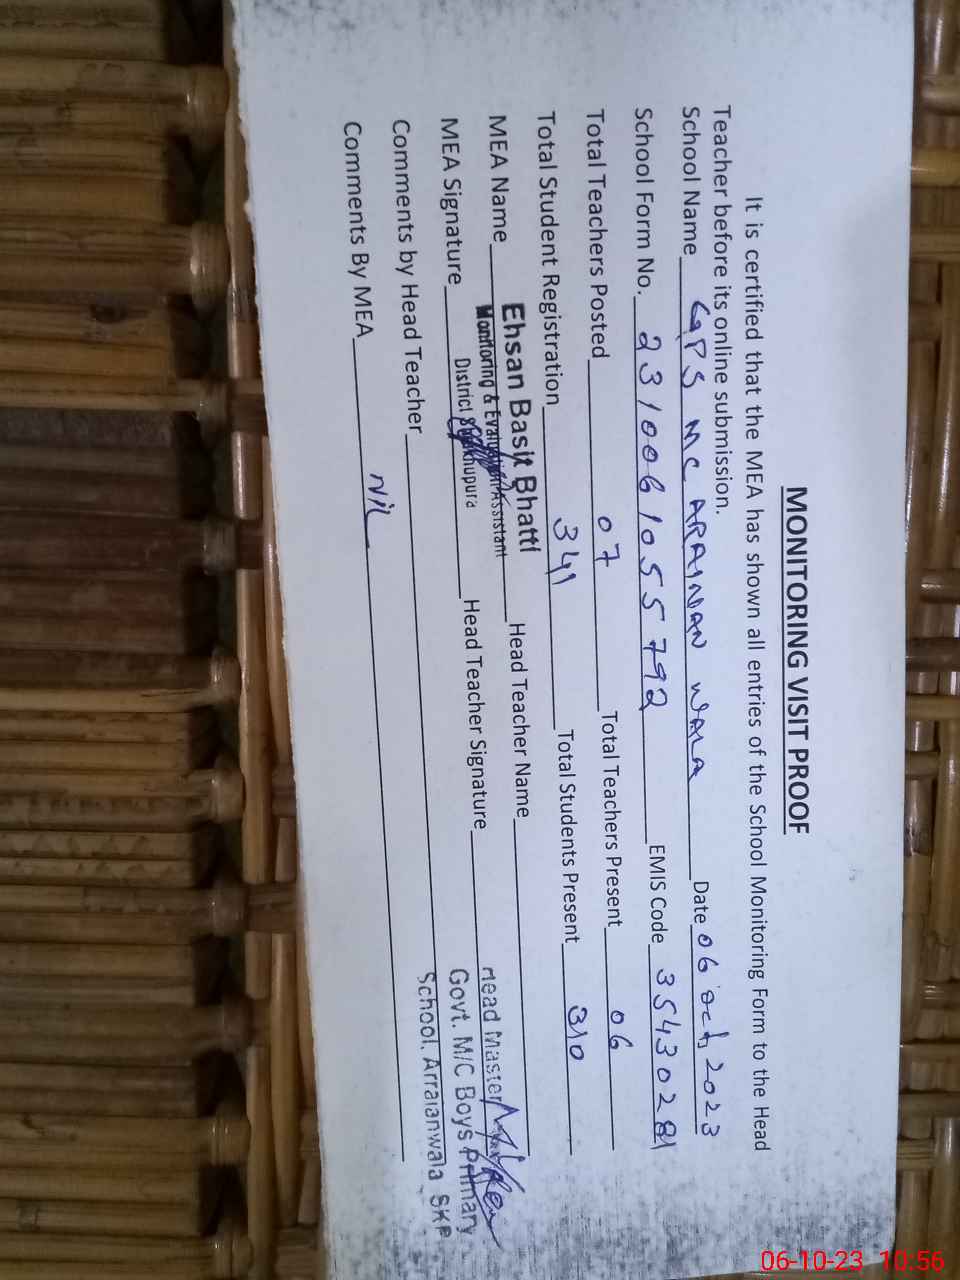 MONITORING VISIT PROOF
It is certified that the MEA has shown all entries of the School Monitoring Form to the Head
Teacher before its online submission.
School Name GPS MC ARAINAN WALA Date 06 oct, 2023
School Form No. 2310061055792 EMIS Code 35430281
Total Teachers Posted 07 Total Teachers Present 06
Total Student Registration 341 Total Students Present 310
MEA Name Ehsan Basit Bhatti Head Teacher Name
Monitoring & Evaluation Assistant
MEA Signature District Sheikhupura Head Teacher Signature Head Master
Govt. M/C Boys Primary
School. Arraianwala SKP
Comments by Head Teacher
Comments By MEA Nil
06-10-23 10:56